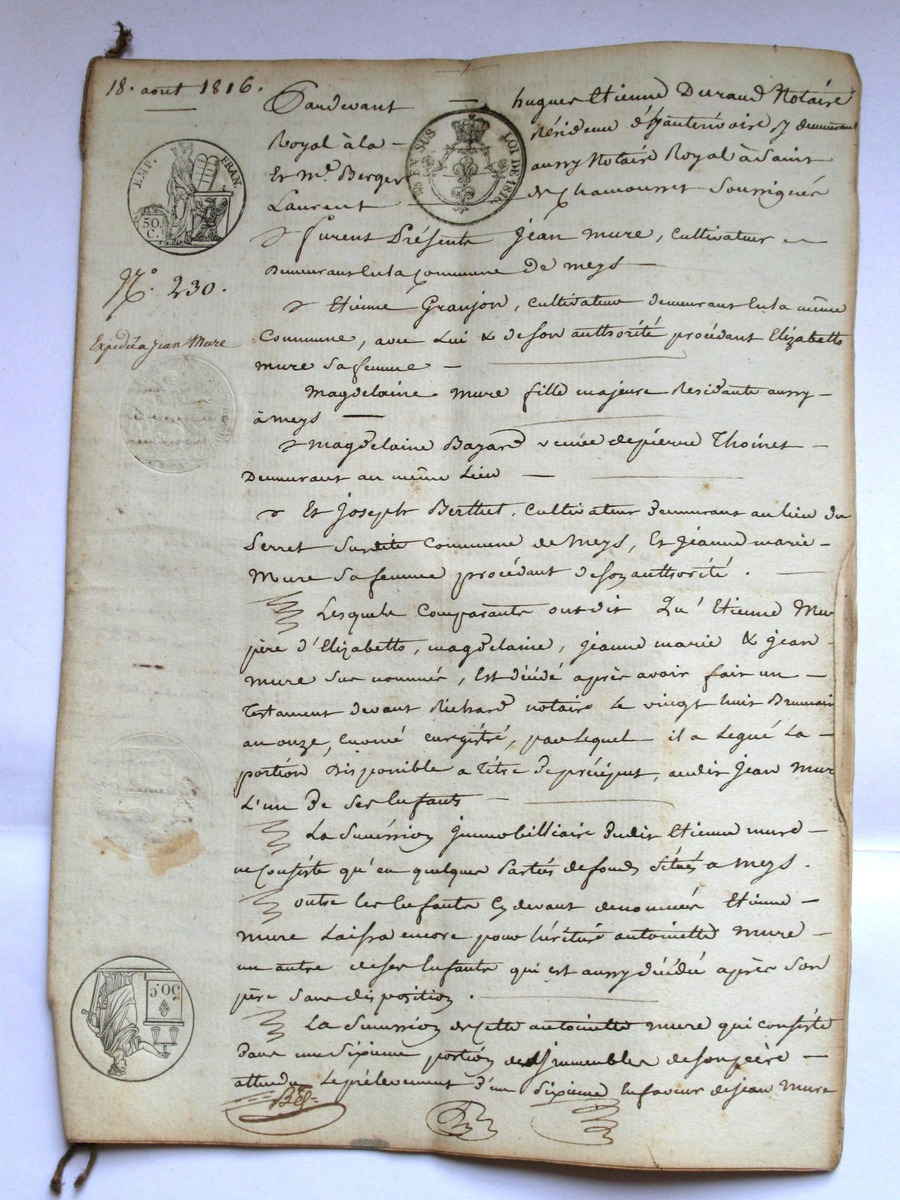 18. aout 1816.
Pardevant hugues Etienne Durand Notaire
Royal à la Résidence d'hauterivoire y demeurant
Et Me. Berger aussy Notaire Royal à Saint
Laurent de Chamousset soussignés
EMP. FRAN.
50 C.
EN SUS
LOI DE 1816.
furent Présents Jean mure, cultivateur
demeurant en la commune de meys
N.º 230.
Etienne Granjon, cultivateur demeurant en la même
Commune, avec Lui & de son authorité procédant Elizabeth
Expédié a jean Mure
mure sa femme
Magdelaine mure fille majeure Résidante aussy
à meys
magdelaine Bazard veuve de pierre Thoinet
Demeurant au même Lieu
Et Joseph Berthet, cultivateur demeurant au lieu du
Serret susdite Commune de Meys, Et jeanne marie
Mure sa femme procédant de son authorité.
Lesquels Comparants ont dit Qu'Etienne Mure
père d'Elizabeth, magdelaine, jeanne marie & jean
mure sus nommés, Est décédé après avoir fait un
Testament devant Richard notaire Le vingt huit Brumaire
an onze, enregistré, par Lequel il a Legué La
portion disponible a titre de préciput, audit Jean Mure
L'un de ses Enfants
La Succession jmmobilliaire dudit Etienne mure
ne Consiste qu'en quelques Parties de fonds situés a Meys.
outre les Enfants cy devant denommés Etienne
Mure Laissa encore pour héritière antoinette Mure
un autre de ses Enfants qui est aussy décédé après son
père sans disposition.
La Succession de cette antoinette mure qui consiste
dans une sixieme portion des jmmeubles de son père
attendu Le prélevement d'un Sixieme En faveur de jean Mure
50 C.